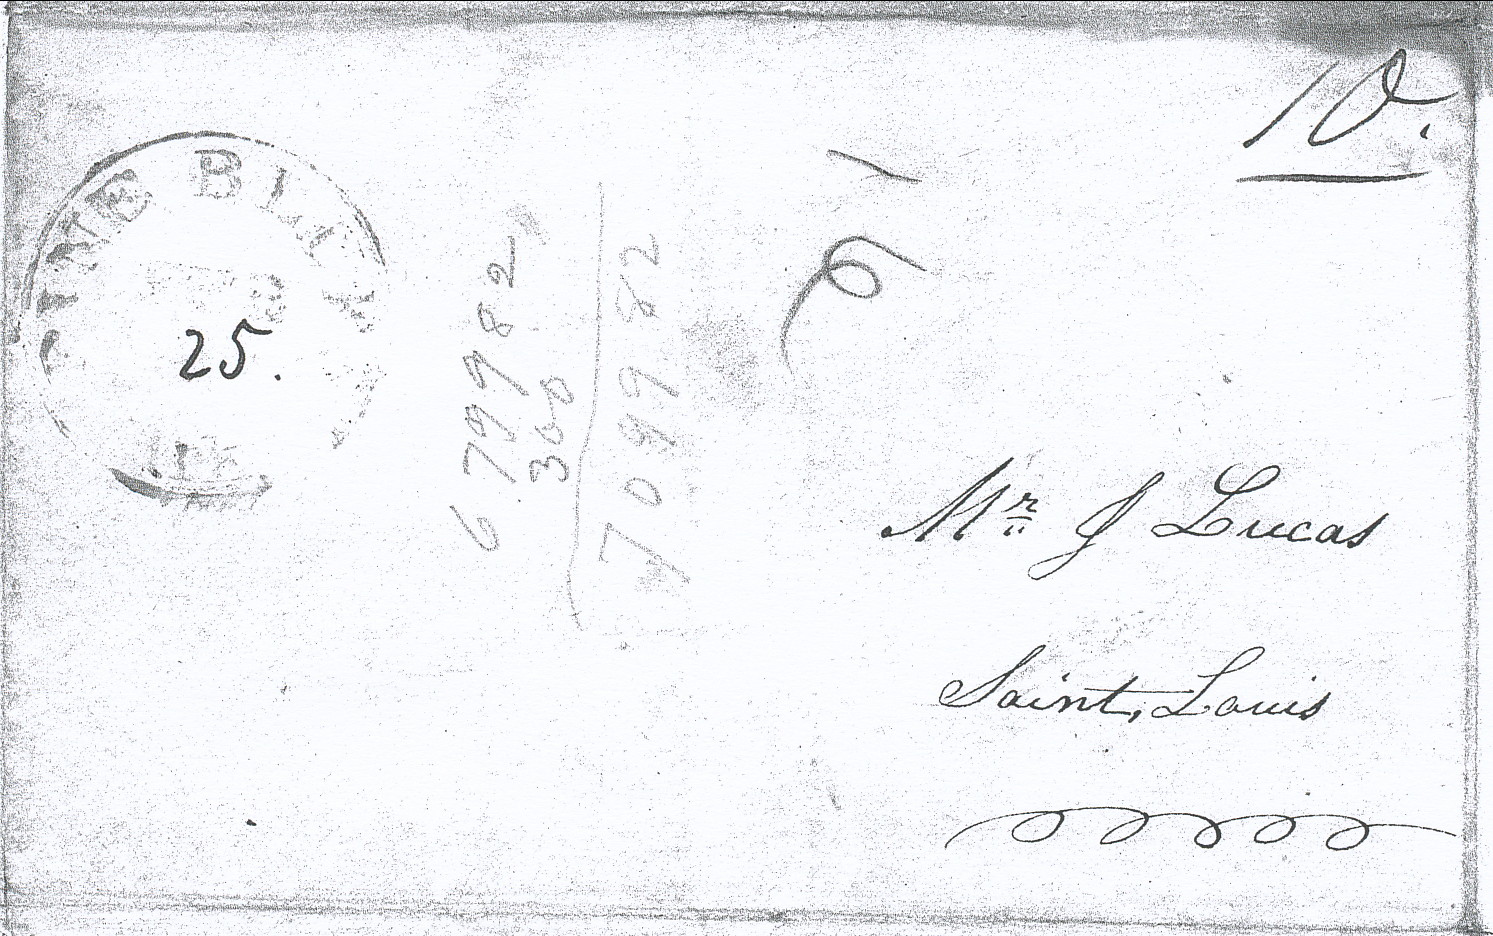 10.
PINE BLUFF
25.
6 799 82
300
709982
Mr J Lucas
Saint, Louis